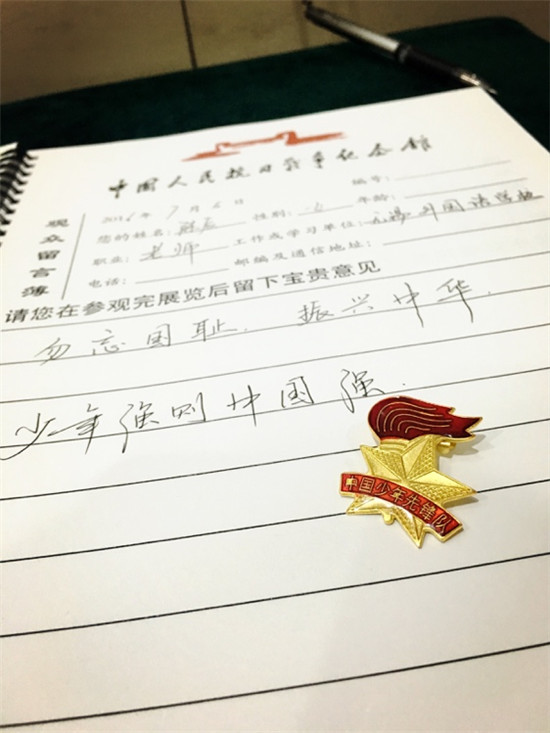 中国人民抗日战争纪念馆
观众留言簿
编号:
您的姓名: 性别: 女 年龄:
职业: 老师 工作或学习单位: 无锡外国语学校
电话: 邮编及通信地址:
请您在参观完展览后留下宝贵意见
勿忘国耻. 振兴中华.
少年强则中国强.
中国少年先锋队